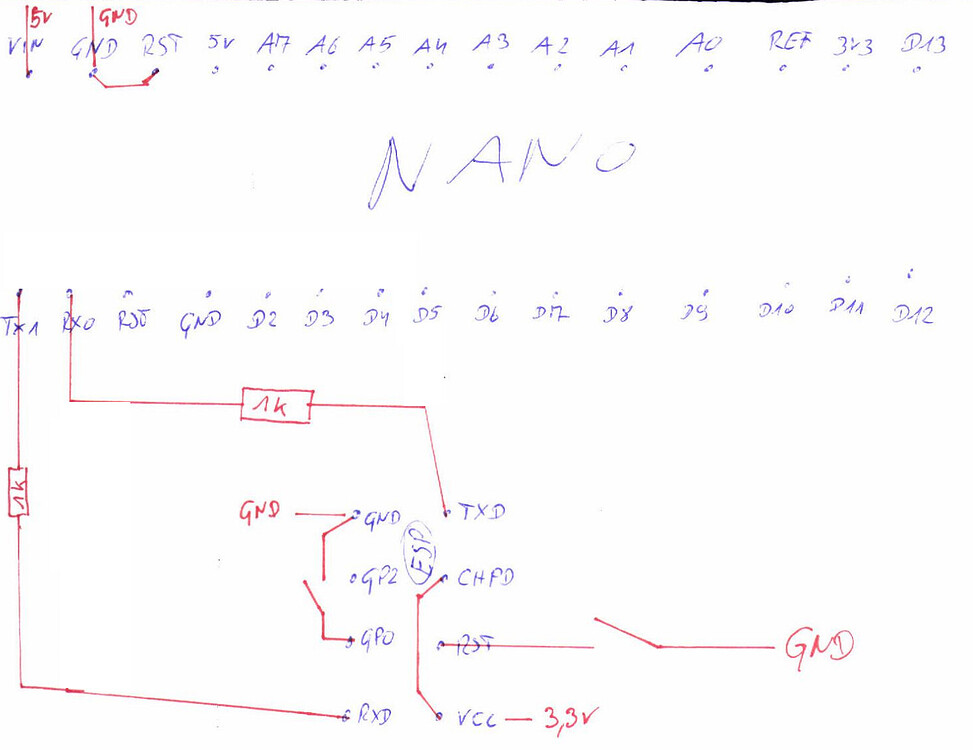 5V GND
VIN GND RST 5V A7 A6 A5 A4 A3 A2 A1 A0 REF 3V3 D13
NANO
TX1 RX0 RST GND D2 D3 D4 D5 D6 D7 D8 D9 D10 D11 D12
1k
1k
GND GND TXD
ESP
GP2 CHPD
GP0 RST GND
RXD VCC 3,3V